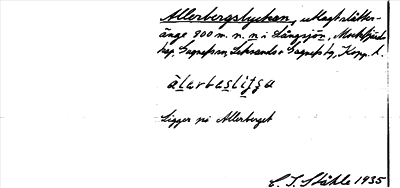 Allerbergslyckan, Magtslåtter-
änge 900 m. n. n i Långsjön, Mockfjärds
kap, Gagnefs sn, Leksands o Gagnefs tg, Kopp. l.
Ligger på Allerberget
C. I. Ståhle 1935